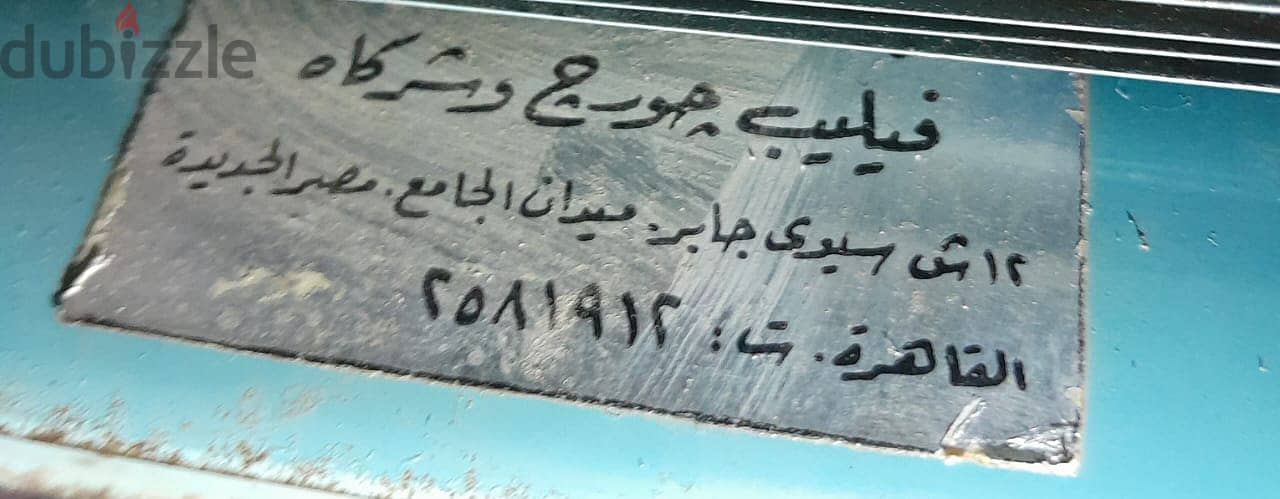 dubizzle
فيليب جورج وشركاه
١٢ ش سيوى جابر. ميدان الجامع. مصر الجديدة
القاهرة. ت: ٢٥٨١٩١٢